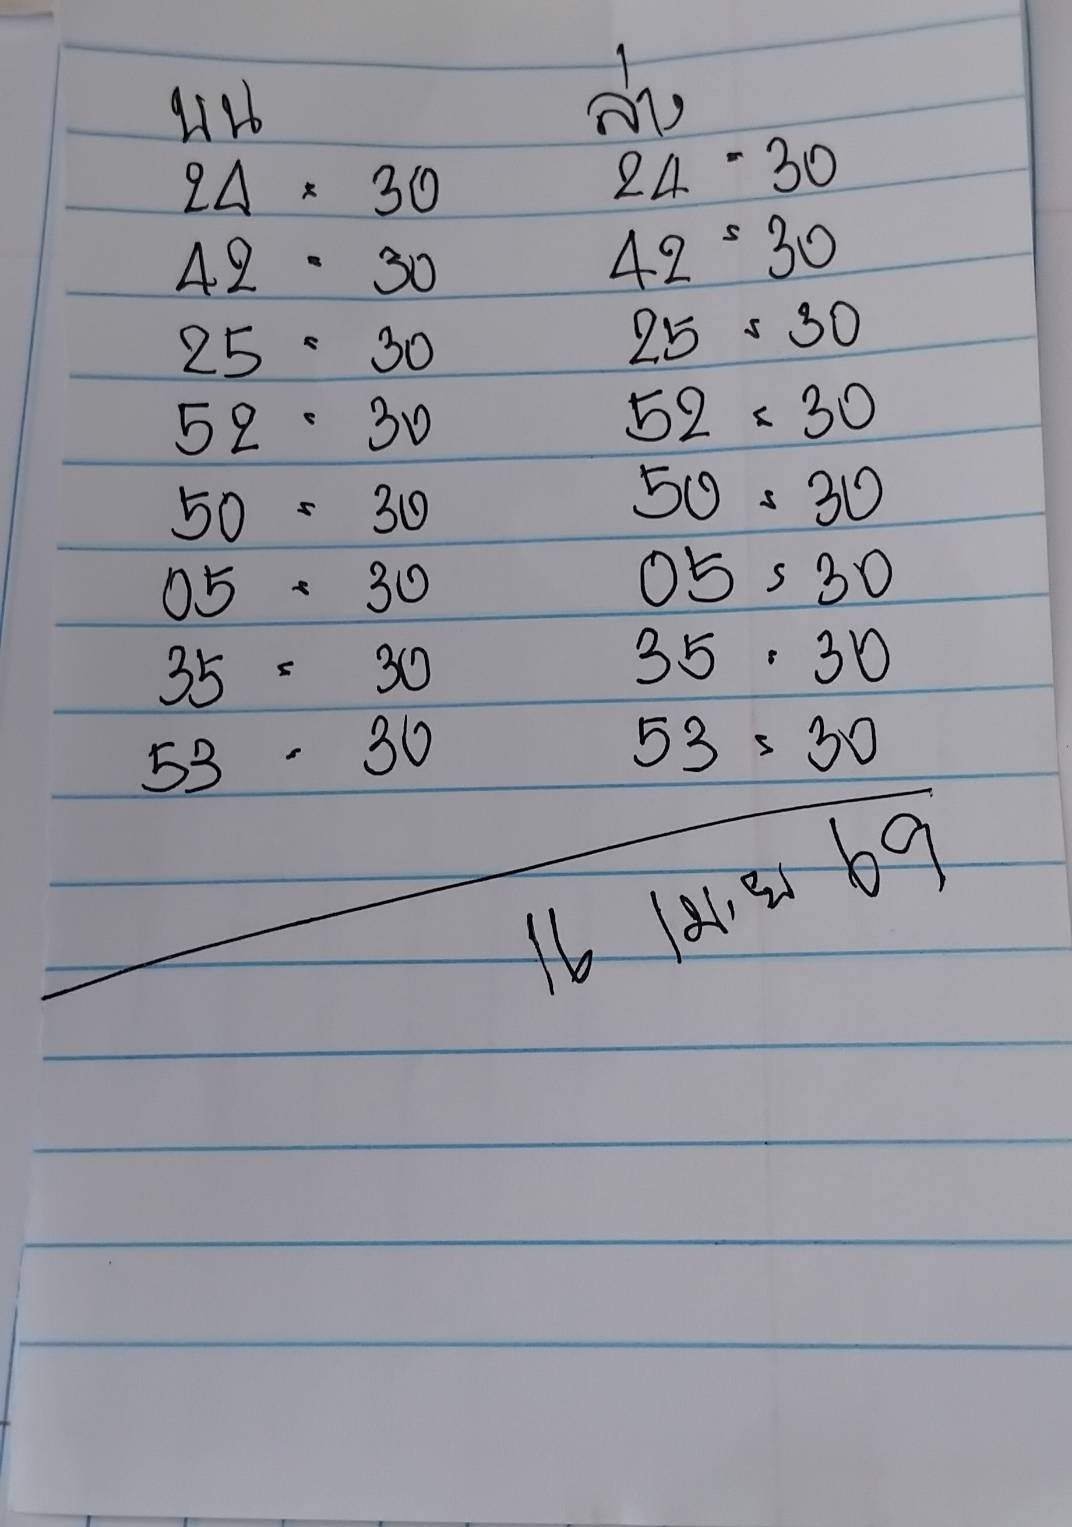 บน ล่าง
24 = 30 24 = 30
42 = 30 42 = 30
25 = 30 25 = 30
52 = 30 52 = 30
50 = 30 50 = 30
05 = 30 05 = 30
35 = 30 35 = 30
53 = 30 53 = 30
16 เม.ย 69